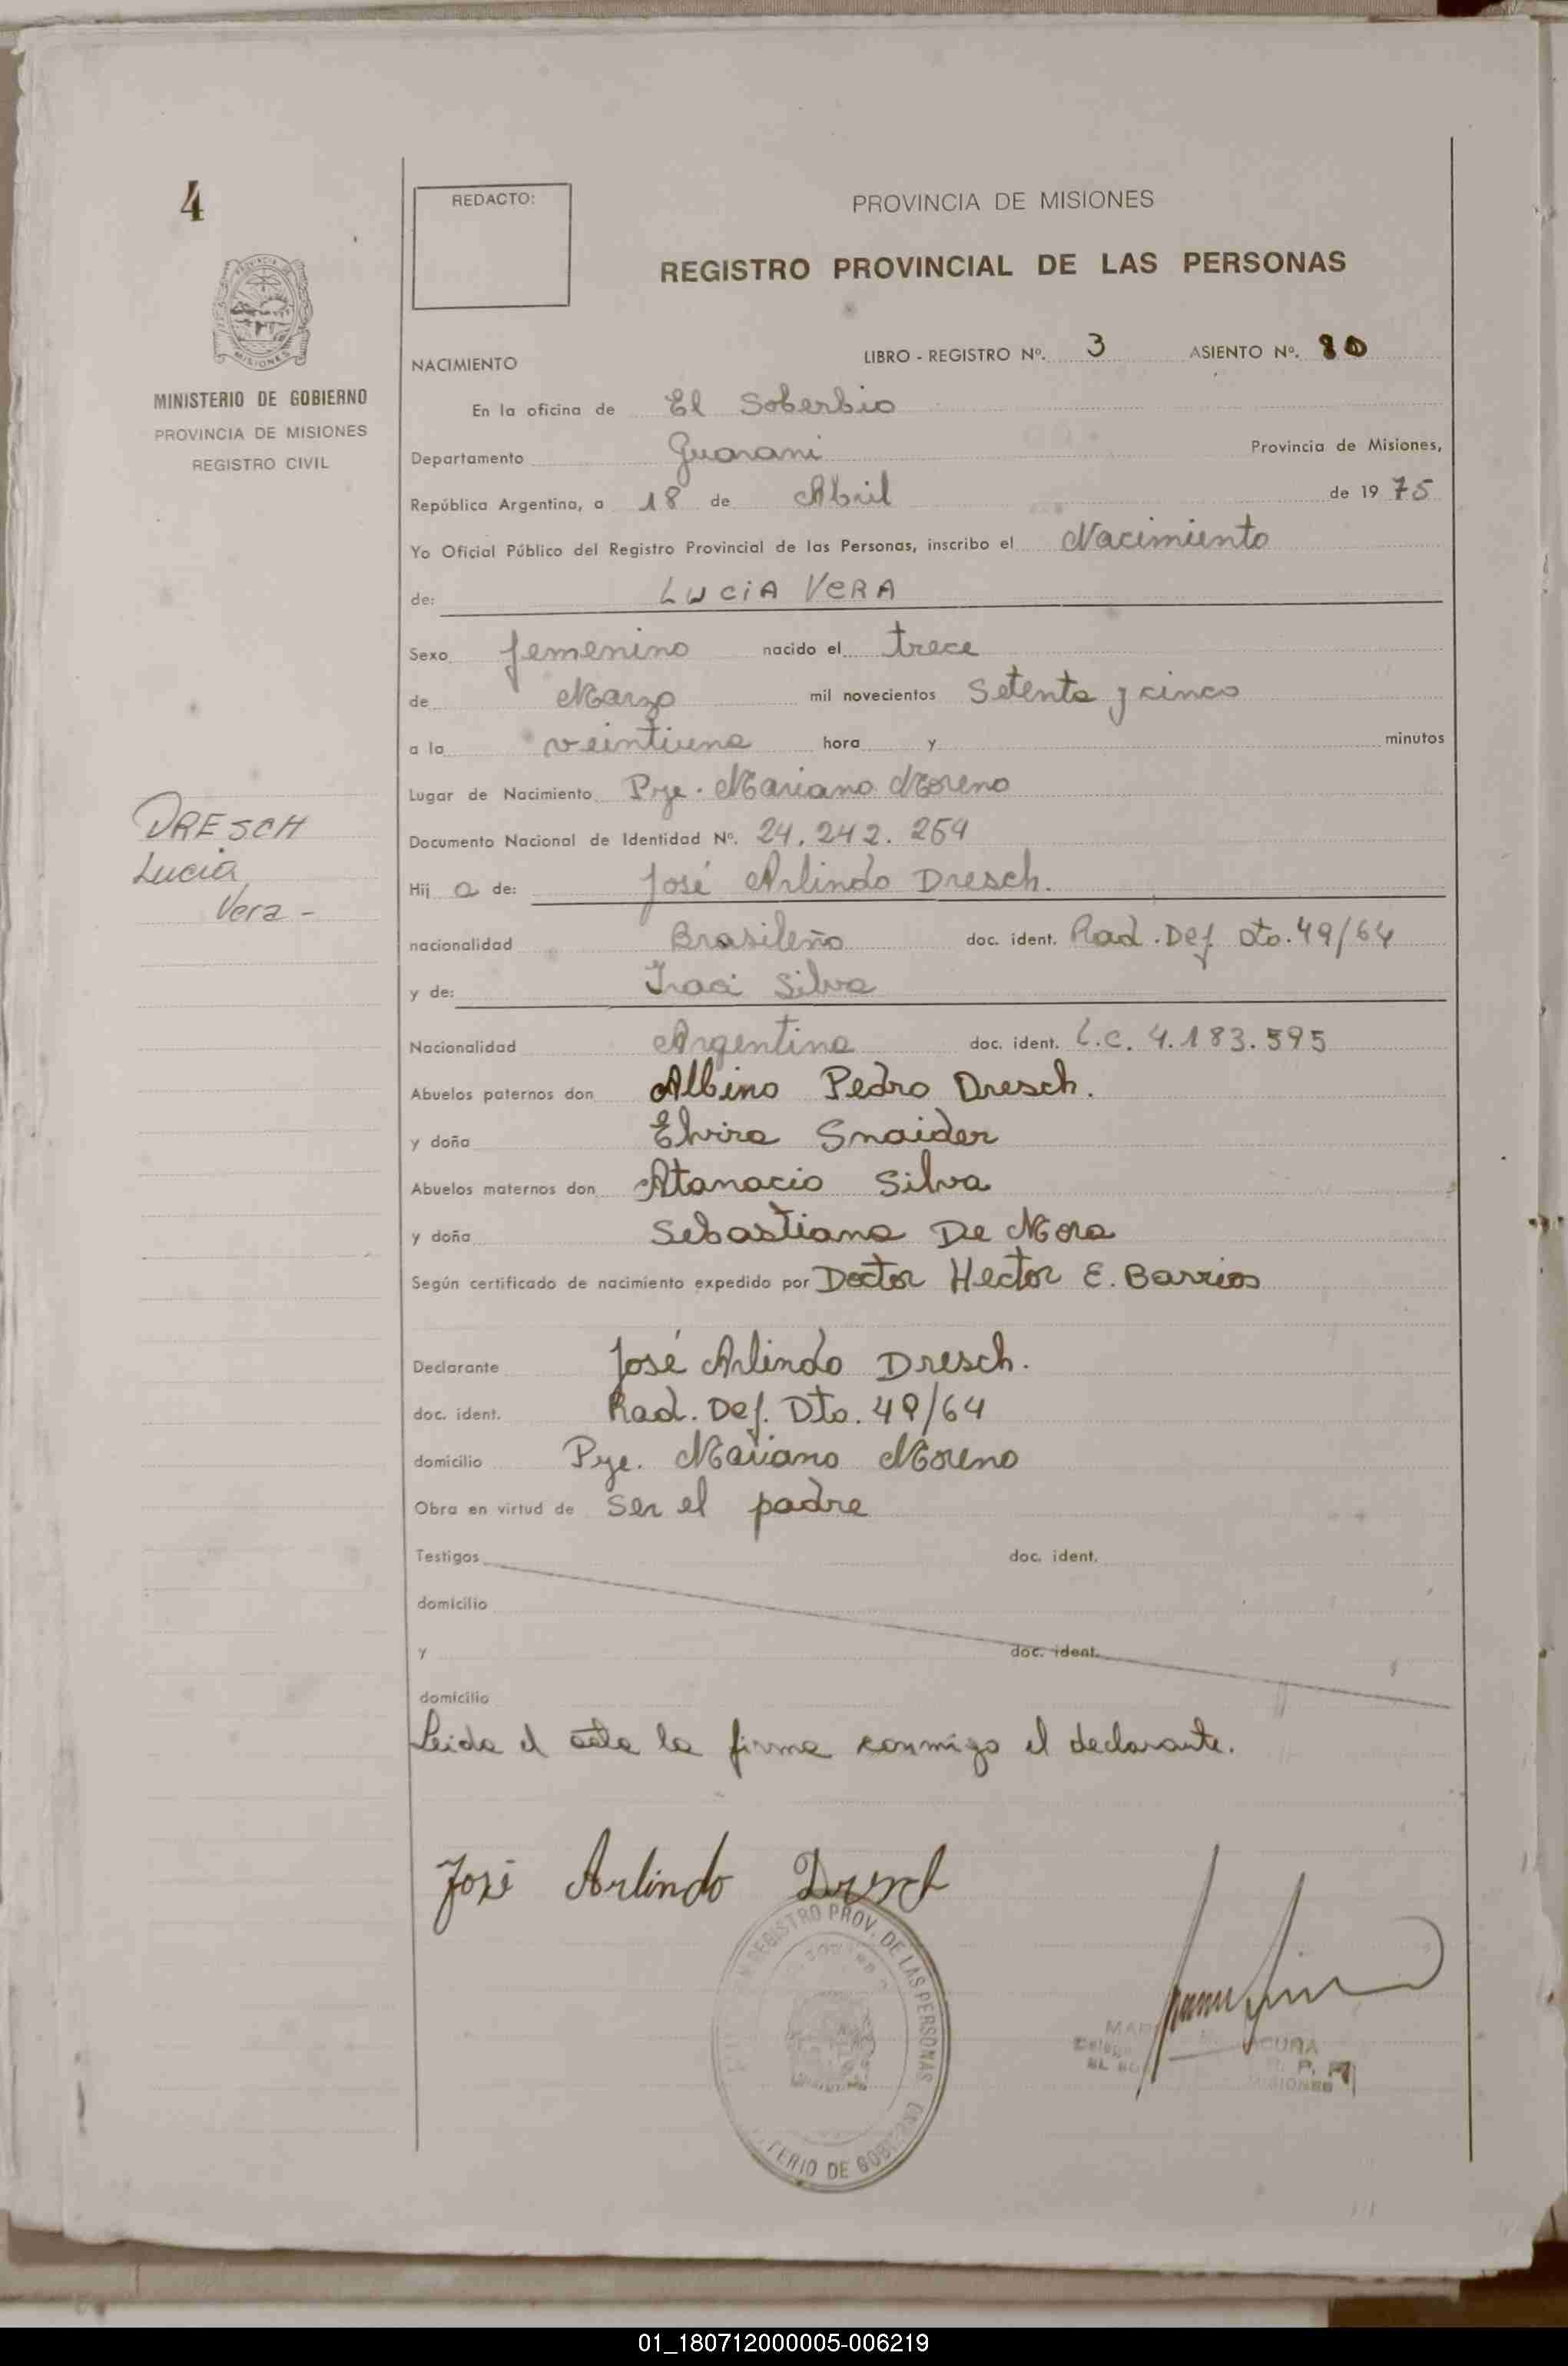 4
REDACTO:
PROVINCIA DE MISIONES
REGISTRO PROVINCIAL DE LAS PERSONAS
MISIONES
MINISTERIO DE GOBIERNO
PROVINCIA DE MISIONES
REGISTRO CIVIL
NACIMIENTO
LIBRO - REGISTRO Nº. 3 ASIENTO Nº. 80
En la oficina de El Soberbio
Departamento Guarani Provincia de Misiones,
República Argentina, a 18 de Abril de 1975
Yo Oficial Público del Registro Provincial de las Personas, inscribo el Nacimiento
de: LUCIA VERA
Sexo femenino nacido el trece
de Marzo mil novecientos Setenta y cinco
a la veintiuna hora y minutos
Lugar de Nacimiento Pje. Mariano Moreno
Documento Nacional de Identidad Nº. 24.242.264
DRESCH
Lucia
Vera -
Hij a de: José Arlindo Dresch.
nacionalidad Brasileño doc. ident. Rad. Def Dto. 49/64
y de: Iraci Silva
Nacionalidad Argentina doc. ident. L.C. 4.183.595
Abuelos paternos don Albino Pedro Dresch.
y doña Elvira Snaider
Abuelos maternos don Atanacio Silva
y doña Sebastiana De Mora
Según certificado de nacimiento expedido por Doctor Hector E. Barrios
Declarante José Arlindo Dresch.
doc. ident. Rad. Def. Dto. 49/64
domicilio Pje. Mariano Moreno
Obra en virtud de ser el padre
Testigos doc. ident.
domicilio
y doc. ident.
domicilio
Leida el acta la firma conmigo el declarante.
José Arlindo Dresch
REGISTRO PROV. DE LAS PERSONAS
DE GOBIERNO
MISIONES
01_180712000005-006219